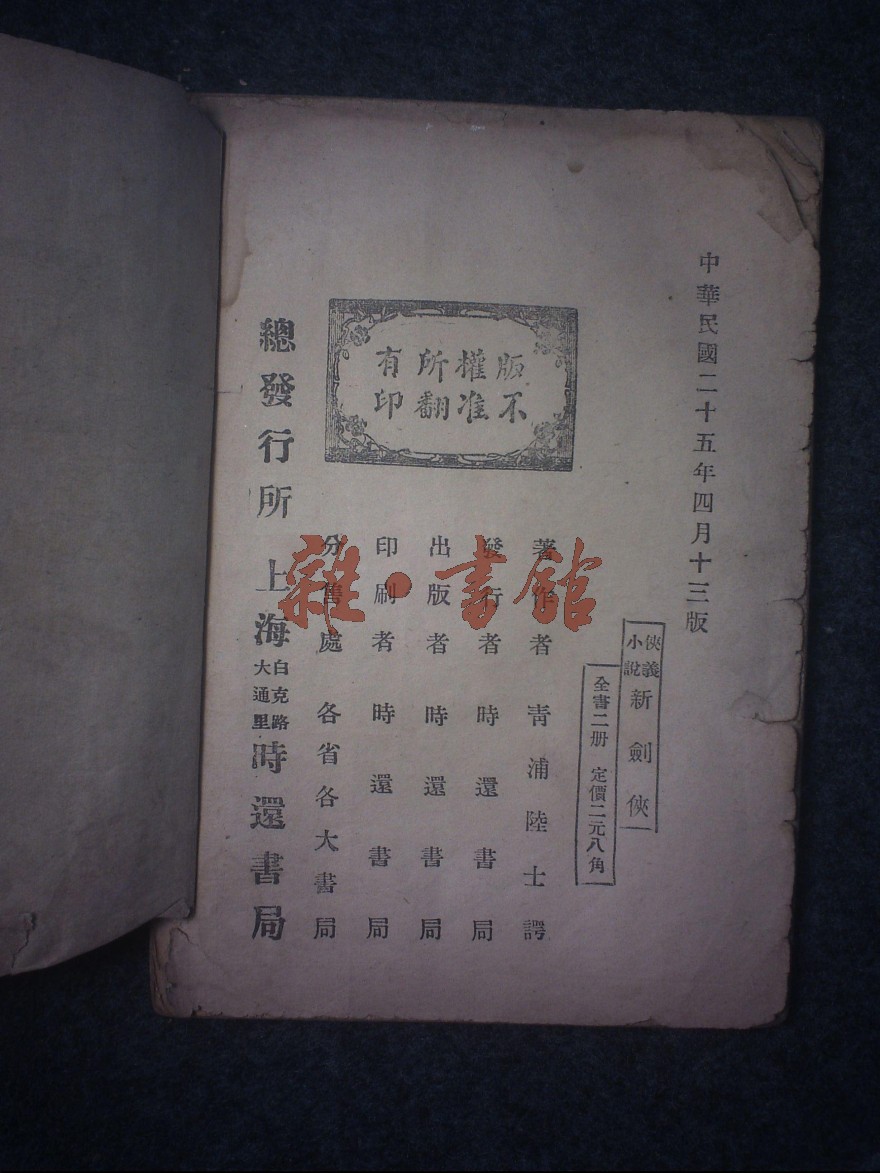 中華民國二十五年四月十三版
俠義小說
新劍俠
全書二册 定價二元八角
版權所有
不准翻印
著作者 青浦陸士諤
發行者 時還書局
出版者 時還書局
印刷者 時還書局
分售處 各省各大書局
總發行所 上海白克路大通里時還書局
雜·書館